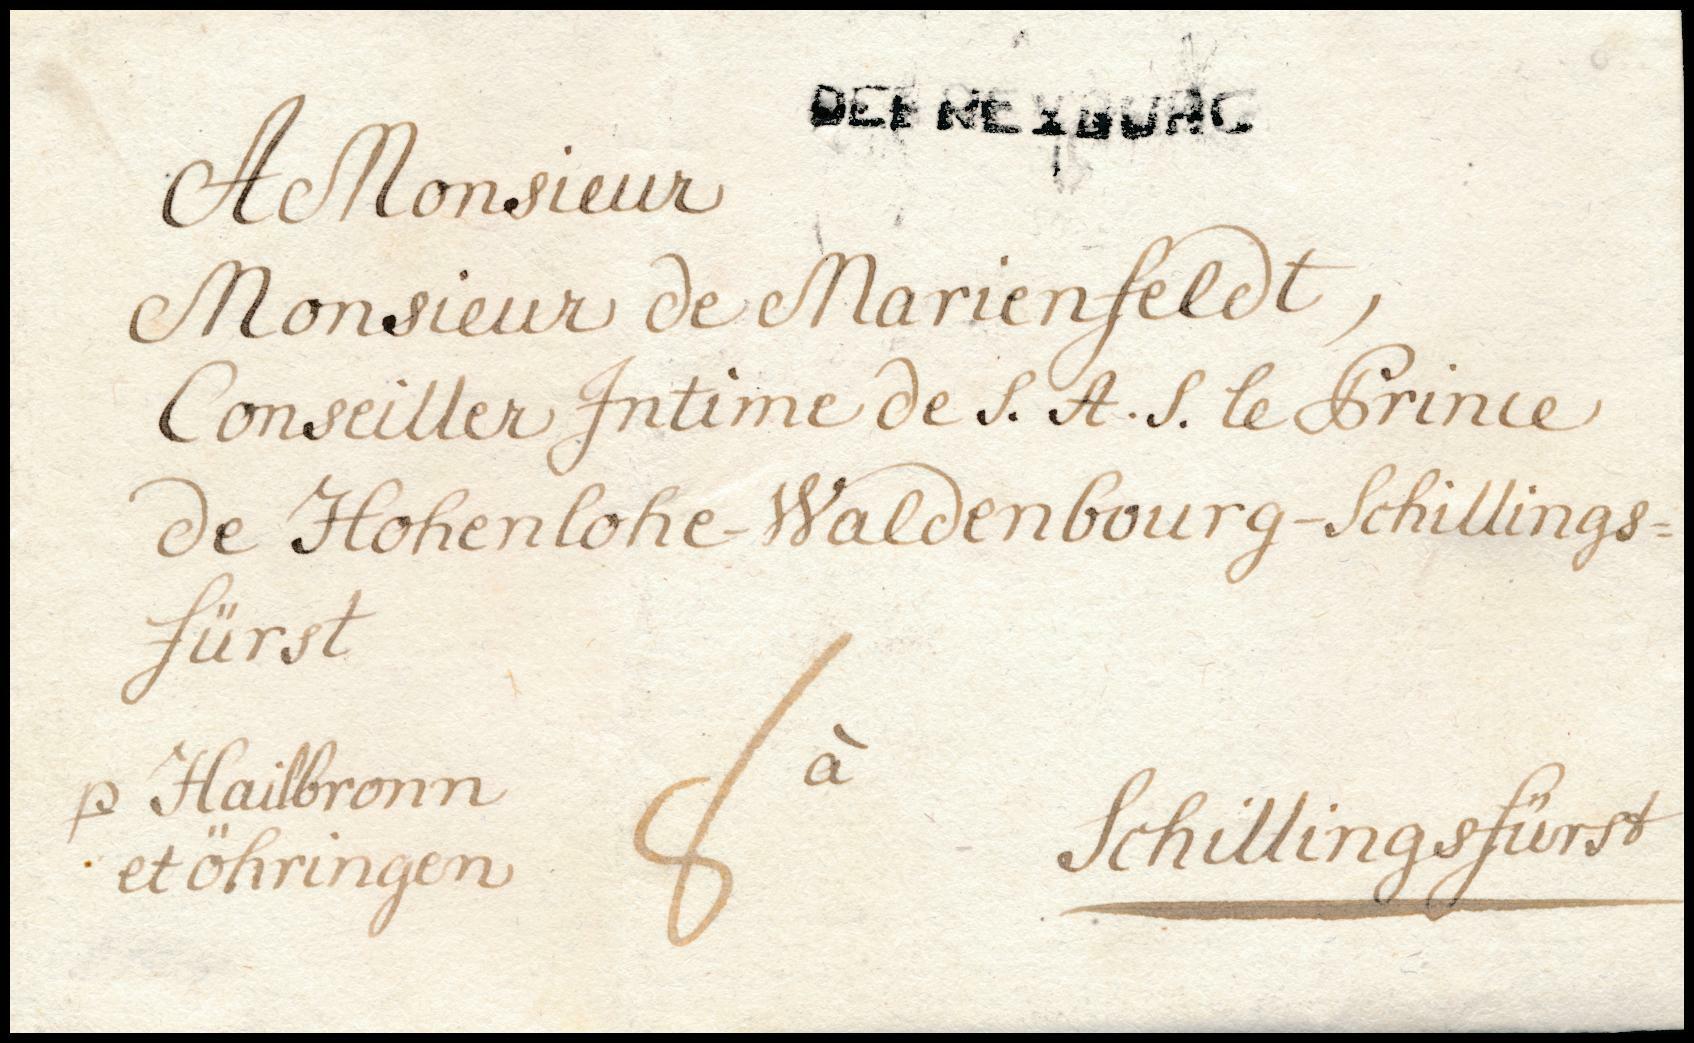 DEFREYBURG
A Monsieur
Monsieur de Marienfeldt,
Conseiller Intime de S. A. S. le Prince
de Hohenlohe-Waldenbourg-Schillings=
fürst
p Hailbronn
et öhringen
8
à
Schillingsfürst